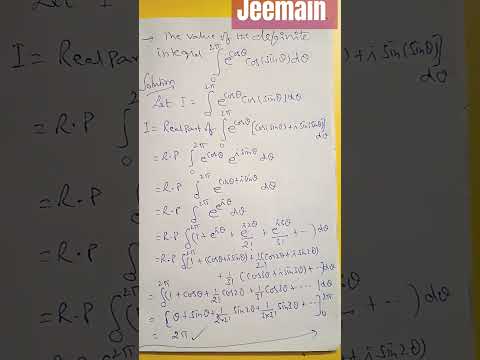 Jeemain
→ The value of the definite
integral ∫₀^2π e^cosθ cos(sinθ)dθ
Solution
Let I = ∫₀^2π e^cosθ cos(sinθ)dθ
I = Real part of ∫₀^2π e^cosθ [cos(sinθ)+i sin(sinθ)]dθ
= R.P ∫₀^2π e^cosθ e^isinθ dθ
= R.P ∫₀^2π e^cosθ+isinθ dθ
= R.P ∫₀^2π e^e^iθ dθ
= R.P ∫₀^2π (1 + e^iθ + e^i2θ/2! + e^i3θ/3! + ...)dθ
= R.P ∫₀^2π (1 + (cosθ+isinθ)+1/2!(cos2θ+isin2θ)
+ 1/3! (cos3θ+isin3θ)+...)dθ
= ∫₀^2π (1 + cosθ+1/2! cos2θ + 1/3! cos3θ + ...)dθ
= [θ + sinθ + 1/2×2! sin2θ + 1/3×3! sin3θ + ...]₀^2π
= 2π ✓